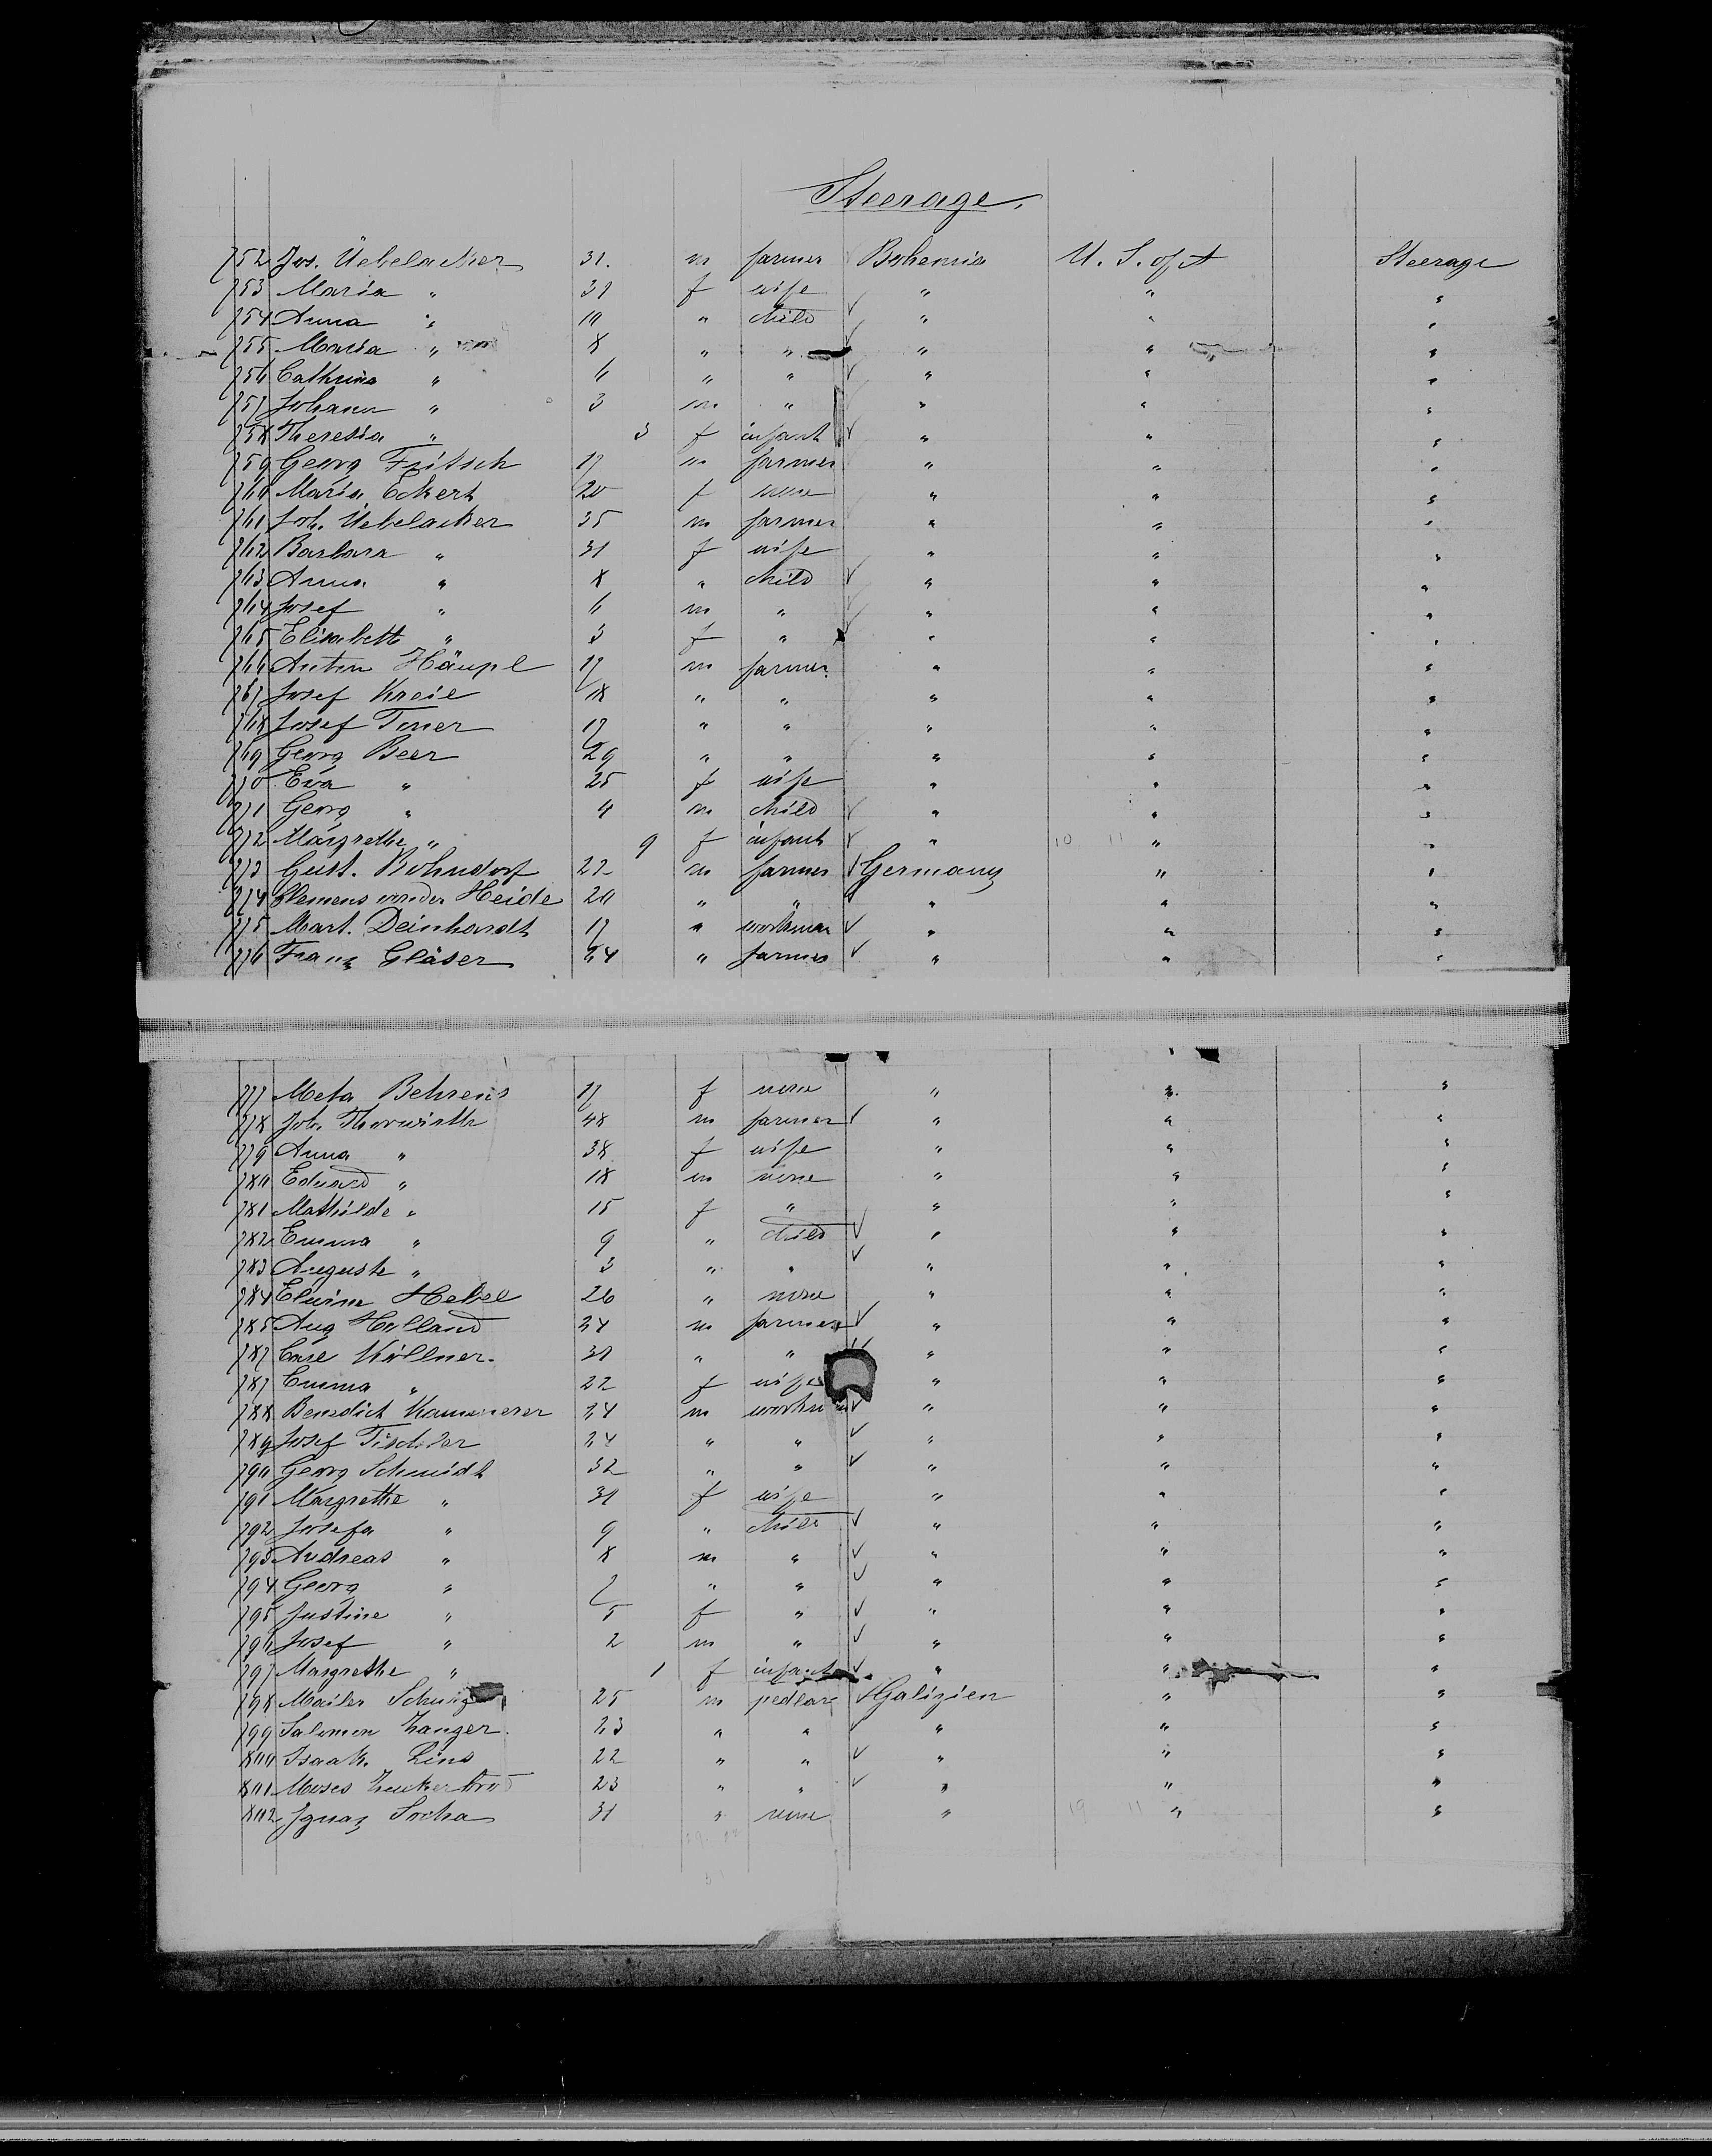 Steerage.
752 Jos. Üebelacker 31. m farmer Bohemia U. S. of A Steerage
753 Maria " 31 f wife " " "
754 Anna " 10 " child " " "
755 Maria " 8 " " " " "
756 Cathrina " 6 " " " " "
757 Johann " 3 m " " " "
758 Theresia " 3 f infant " " "
759 Georg Fritsch 17 m farmer " " "
760 Maria Eckert 20 f none " " "
761 Joh. Üebelacker 35 m farmer " " "
762 Barbara " 31 f wife " " "
763 Anna " 8 " child " " "
764 Josef " 6 m " " " "
765 Elisabeth " 3 f " " " "
766 Anton Häupl 17 m farmer " " "
767 Josef Kreil 18 " " " " "
768 Josef 17 " " " " "
769 Georg Beer 29 " " " " "
770 Eva " 25 f wife " " "
771 Georg " 4 m child " " "
772 Margrethe " 9 f infant " 10 11 " "
773 Gust. Rohndorf 22 m farmer Germany " "
774 Clemens von der Heide 20 " " " " "
775 Mart. Deinhardt 17 " workman " " "
776 Franz Gläser 24 " farmer " " "
777 Meta Behrens 17 f none " " "
778 Joh. 48 m farmer " " "
779 Anna " 38 f wife " " "
780 Eduard " 18 m none " " "
781 Mathilde " 15 f " " " "
782 Emma " 9 " child " " "
783 Auguste " 3 " " " " "
784 Elwine Hebel 26 " none " " "
785 Aug Holland 24 m farmer " " "
787 Carl Köllner. 31 " " " " "
787 Emma " 22 f wife " " "
788 Benedict Kammerer 24 m workman " " "
789 Josef Tischler 24 " " " " "
790 Georg Schmidt 32 " " " " "
791 Margrethe " 31 f wife " " "
792 Josefa " 9 " child " " "
793 Andreas " 8 m " " " "
794 Georg " 7 " " " " "
795 Justine " 5 f " " " "
796 Josef " 2 m " " " "
797 Margrethe " 1 f infant " " "
798 Mailer 25 m pedlare Galizien " "
799 Salomon Zanger. 23 " " " " "
800 Isaak Lins 22 " " " " "
801 Moses Zuckerbrod 23 " " " " "
802 Ignaz Socha 31 " none " 19 11 " "